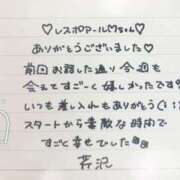 ♡レスポアール♡ちゃん♡
ありがとうございました♡
前回お話した通り今週も
会えてすごーく嬉しかったです♡
いつも差し入れもありがとう(:;)
スタートから素敵な時間で
すごく幸せでした
芹沢